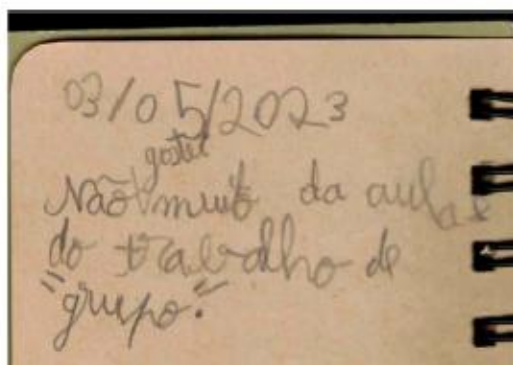 03/05/2023
gostei
Não muito da aula e
do trabalho de
"grupo."